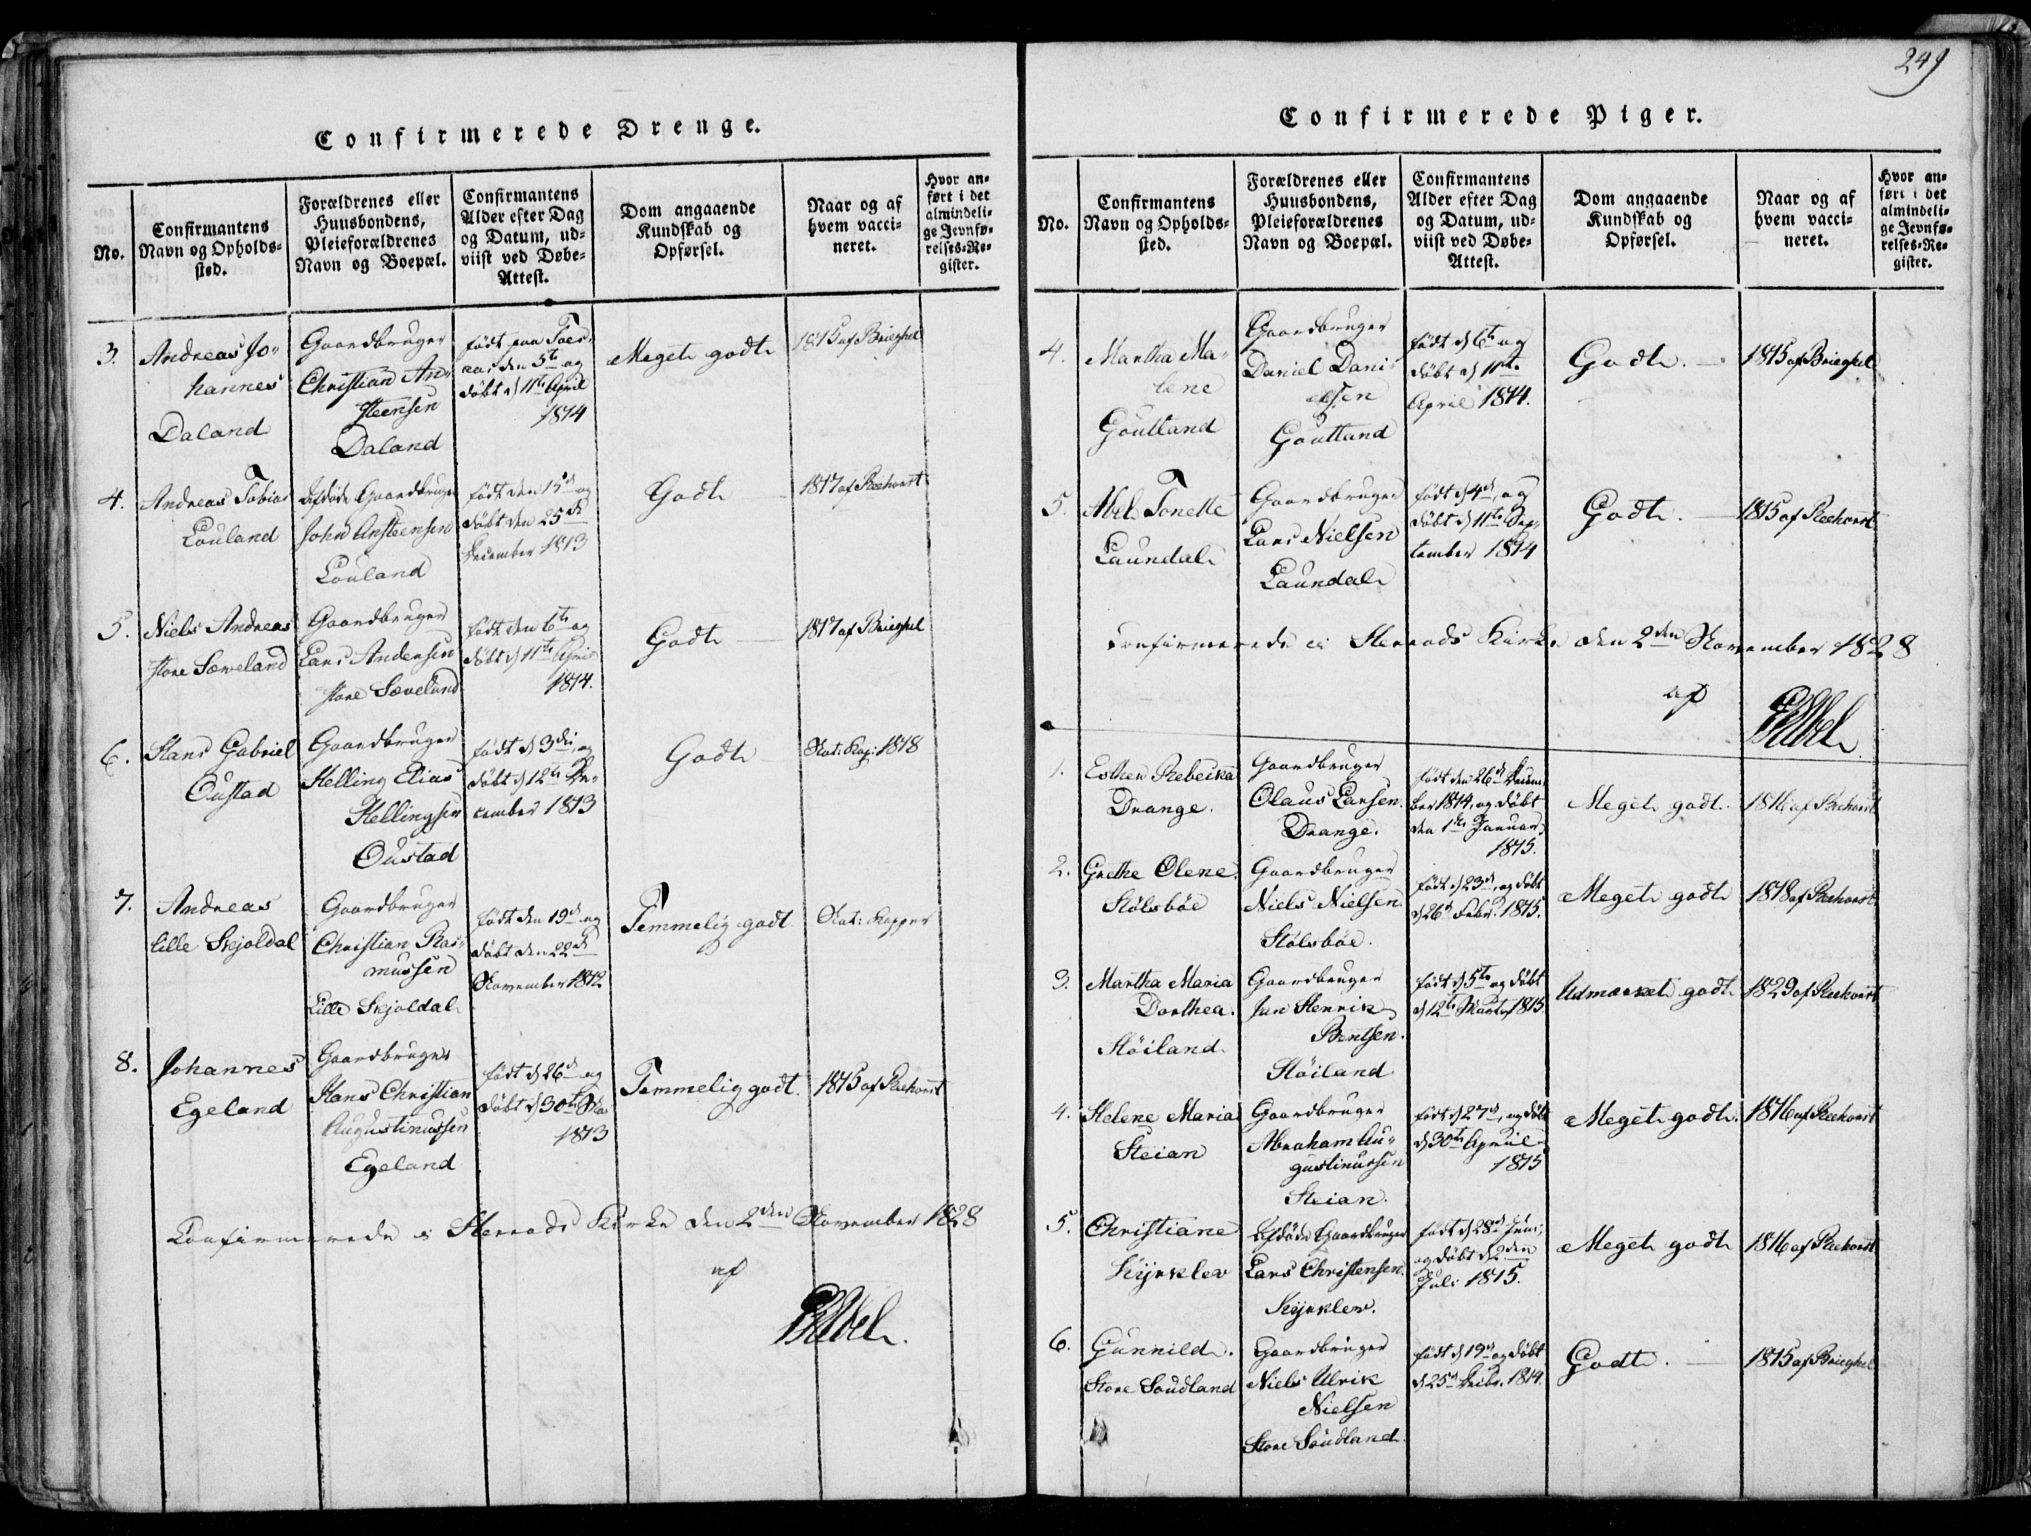 249
Confirmerede Drenge.
No.
Confirmantens
Navn og Opholds-
sted.
Forældrenes eller
Huusbondens,
Pleieforældrenes
Navn og Boepæl.
Confirmantens
Alder efter Dag
og Datum, ud-
viist ved Døbe-
Attest.
Dom angaaende
Kundskab og
Opførsel.
Naar og af
hvem vacci-
neret.
Hvor an-
ført i det
almindeli-
ge Jevnfø-
relses-Re-
gister.
3.
Andreas Jo-
hannes
Daland
Gaardbruger
Christian An-
steensen
Daland
født paa
den 5te og
døbt d 11te April
1814
Meget godt
1815 af Brieghel
4.
Andreas Tobias
Louland
Afdøde Gaardbruger
John Ansteensen
Louland
født den 15d og
døbt den 25de
December 1813
Godt
1817 af Reehorst
5.
Niels Andreas
store Sæveland
Gaardbruger
Lars Andersen
store Sæveland
født den 6te og
døbt d 11te April
1814.
Godt
1817 af Brieghel
6.
Hans Gabriel
Oustad
Gaardbruger
Helling Elias
Hellingsen
Oustad
født d 3die, og
døbt d 12te De-
cember 1813
Godt
Nat: Kop: 1818
7.
Andreas
lille Skjoldal
Gaardbruger
Christian Ras-
mussen
Lille Skjoldal
født den 19d og
døbt den 22de
November 1812
Temmelig godt
Nat: Kopper
8.
Johannes
Egeland
Gaardbruger
Hans Christian
Augustinussen
Egeland
født d 26d og
døbt d 30te
1813
Temmelig godt.
1815 af Reehorst
Confirmerede i Herrads Kirke den 2den November 1828
af
Confirmerede Piger.
No.
Confirmantens
Navn og Opholds-
sted.
Forældrenes eller
Huusbondens,
Pleieforældrenes
Navn og Boepæl.
Confirmantens
Alder efter Dag
og Datum, ud-
viist ved Døbe-
Attest.
Dom angaaende
Kundskab og
Opførsel.
Naar og af
hvem vacci-
neret.
Hvor an-
ført i det
almindeli-
ge Jevnfø-
relses-Re-
gister.
4.
Martha Ma-
lene
Goutland
Gaardbruger
Daniel Dani-
elsen
Goutland
født d 6te og
døbt d 11te
April 1814.
Godt.
1815 af Brieghel
5.
Abel Tonette
Laundal
Gaardbruger
Lars Nielsen
Laundal
født d 4d, og
døbt d 11te Sep-
tember 1814
Godt.
1815 af Reehorst
Confirmerede i Herrads Kirke den 2den November 1828
af
1.
Esther Rebecka
Drange.
Gaardbruger
Olaus Larsen
Drange.
født den 26d Decem-
ber 1814, og døbt
den 1ste Januar
1815.
Meget godt.
1816 af Reehorst
2.
Grethe Olene
Stølsbøe
Gaardbruger
Niels Nielsen
Stølsbøe.
født d 23d, og døbt
d 26d Febr. 1815.
Meget godt
1818 af Reehorst
3.
Martha Maria
Dorthea.
Høiland.
Gaardbruger
Jan Henrik
Bentsen.
Høiland
født d 5te og døbt
d 12te Marts 1815
Udmærket godt
1829 af Reehorst
4.
Helene Maria
Steian
Gaardbruger
Abraham Au-
gustinussen
Steian.
født d 27d, og døbt
d 30te April
1815
Meget godt.
1816 af Reehorst
5.
Christiane
Kyrklev
Afdøde Gaardbruger
Lars Christensen
Kyrklev.
født d 28d Juni,
og døbt d 2den
Juli 1815.
Meget godt
1816 af Reehorst
6.
Gunnild.
Store Soudland
Gaardbruger
Niels Ulrik
Nielsen
Store Soudland.
født d 19d og døbt
d 25d Decbr. 1814.
Godt.
1815 af Brieghel